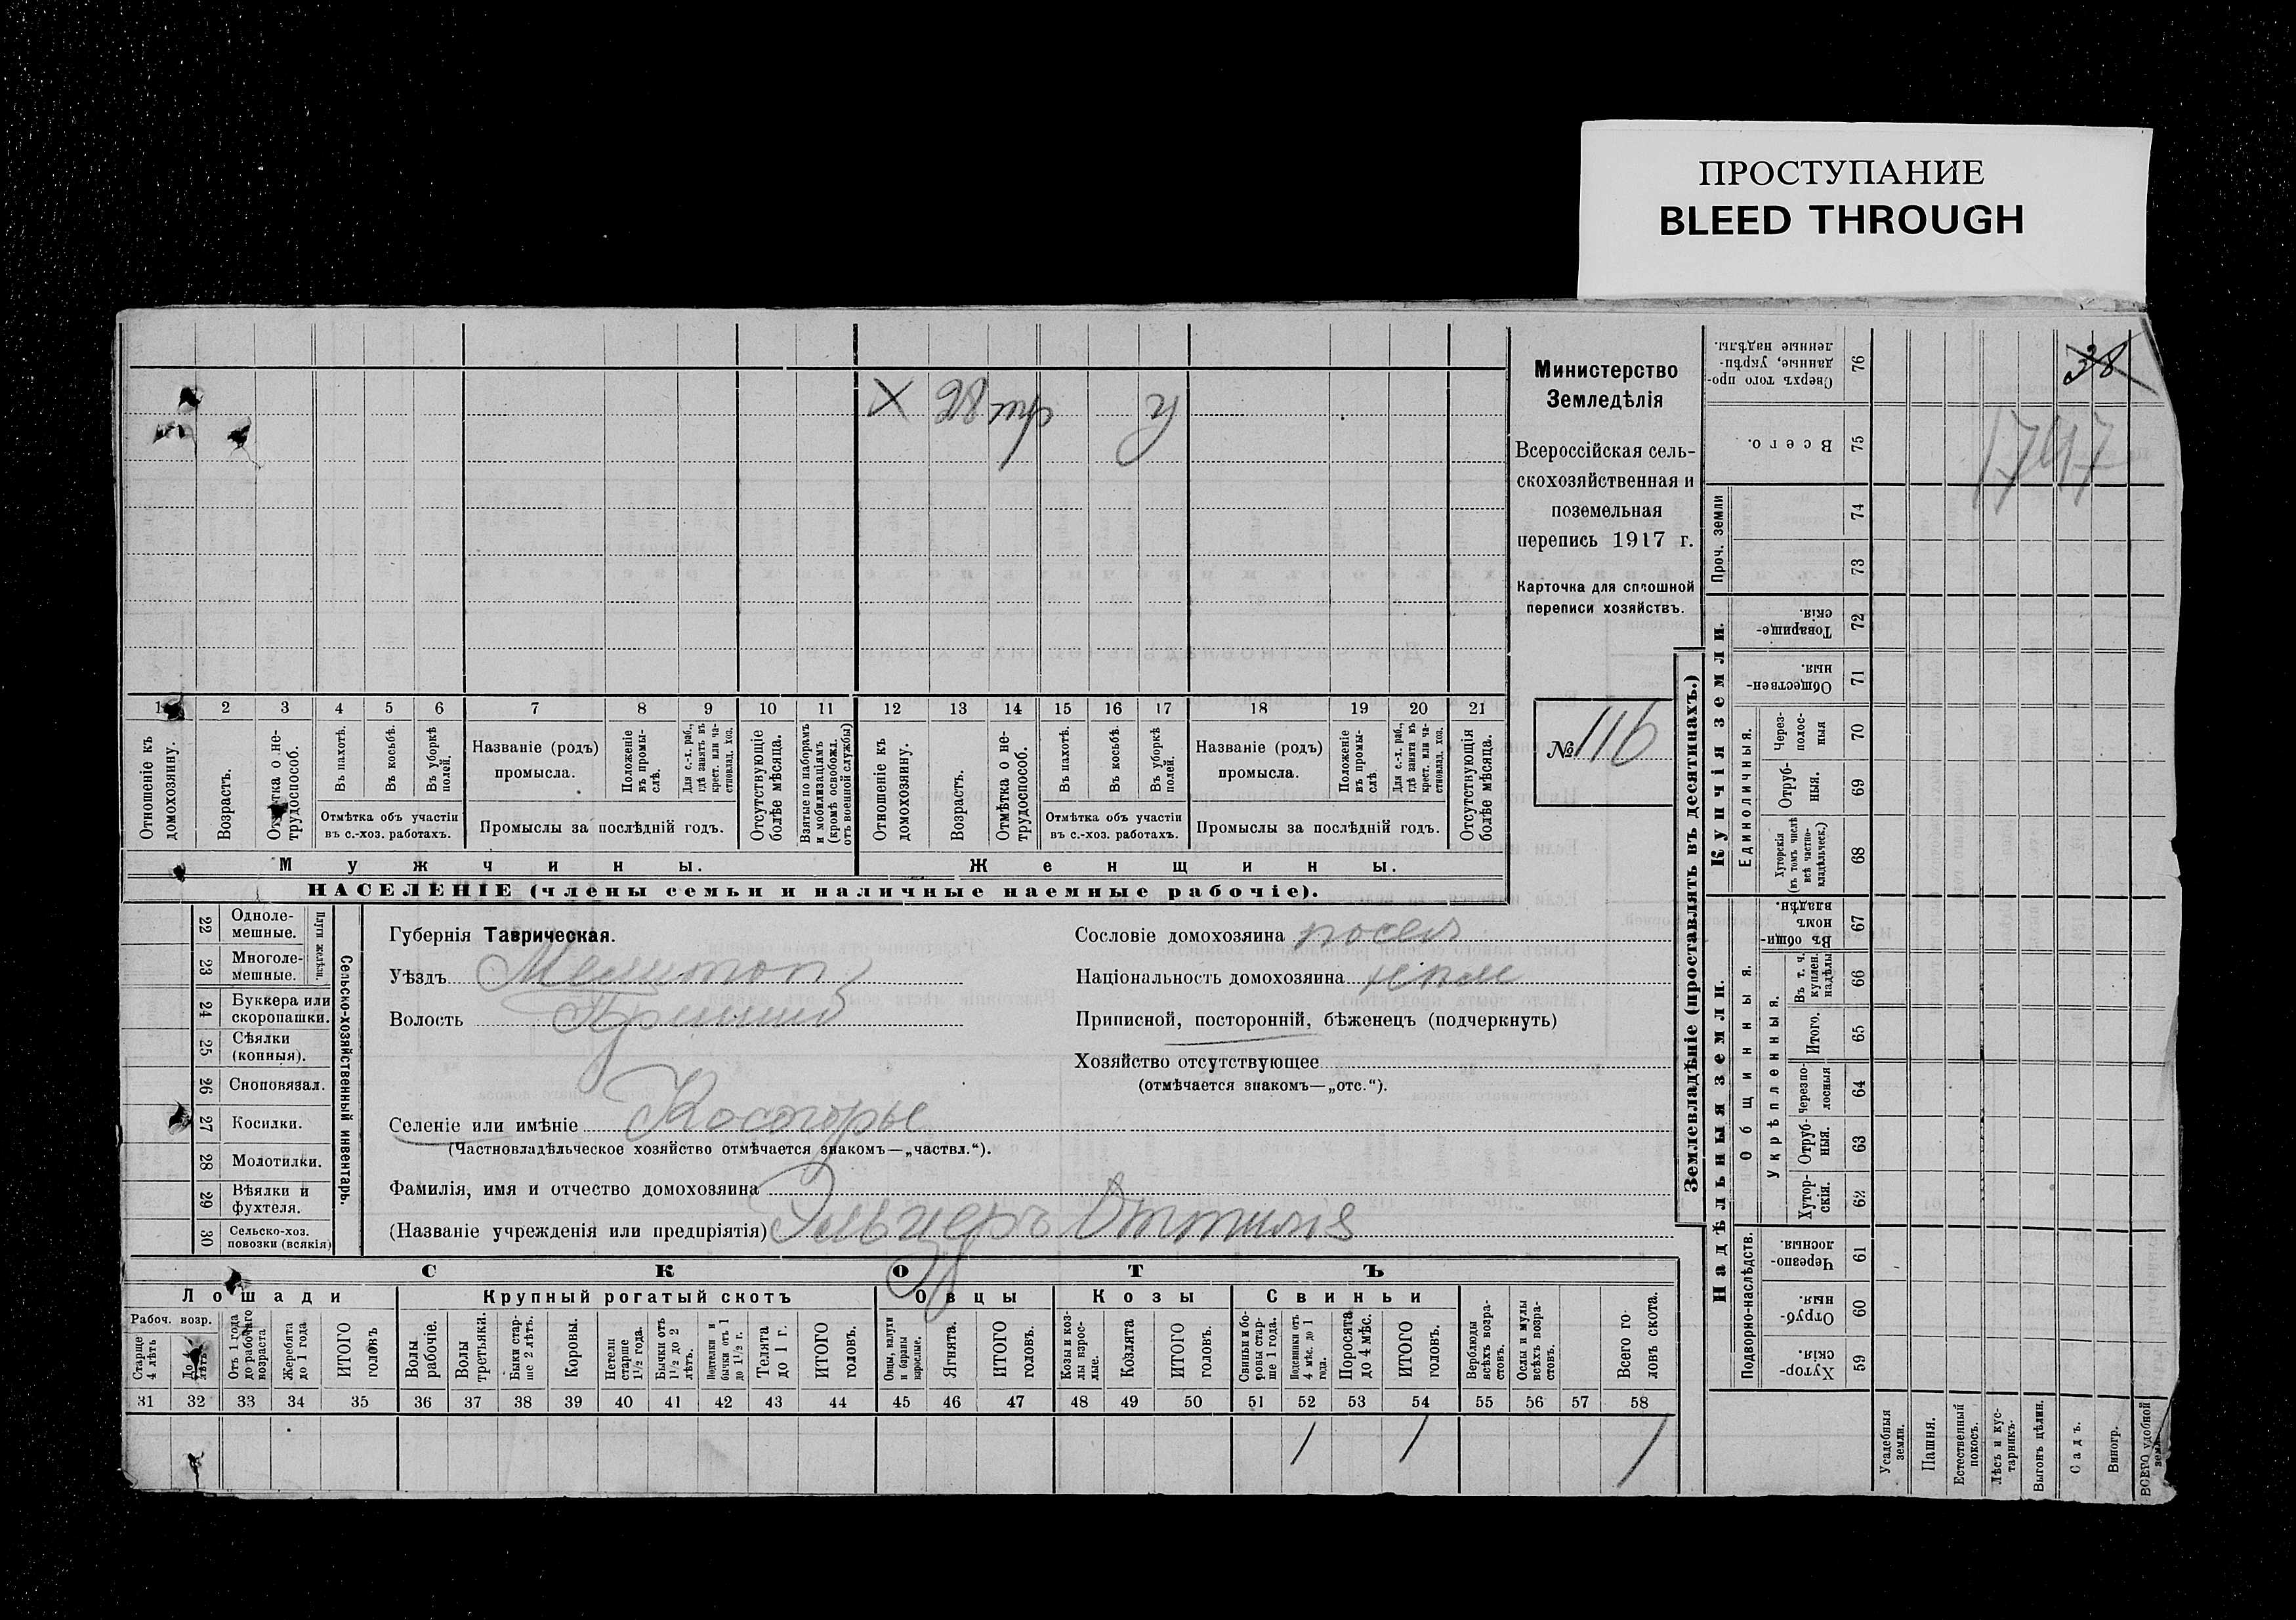 ПРОСТУПАНИЕ
BLEED THROUGH
Х 28 тр у
1 2 3 4 5 6 7 8 9 10 11 12 13 14 15 16 17 18 19 20 21
Отношеніе къ домохозяину.
Возрастъ.
Отмѣтка о нетрудоспособ.
Въ пахотѣ.
Въ косьбѣ.
Въ уборкѣ полей.
Отмѣтка объ участіи
въ с.-хоз. работахъ.
Названіе (родъ)
промысла.
Положеніе въ промыслѣ.
Для с.-х. раб., гдѣ занятъ въ крест. или частновлад. хоз.
Промыслы за послѣдній годъ.
Отсутствующіе болѣе мѣсяца.
Взятые по наборамъ и мобилизаціямъ (кромѣ освобожд. отъ военной службы)
Отношеніе къ домохозяину.
Возрастъ.
Отмѣтка о нетрудоспособ.
Въ пахотѣ.
Въ косьбѣ.
Въ уборкѣ полей.
Отмѣтка объ участіи
въ с.-хоз. работахъ.
Названіе (родъ)
промысла.
Положеніе въ промыслѣ
Для с.-х. раб., гдѣ занята въ крест. или частновлад. хоз.
Промыслы за послѣдній годъ.
Отсутствующія болѣе мѣсяца.
Мужчины.
Женщины.
НАСЕЛЕНІЕ (члены семьи и наличные наемные рабочіе).
Министерство
Земледѣлія
Всероссійская сель-
скохозяйственная и
поземельная
перепись 1917 г.
Карточка для сплошной
переписи хозяйствъ.
№ 116
22 Одноле-
мешные.
23 Многоле-
мешные.
Плуги желѣзн.
24 Буккера или
скоропашки.
25 Сѣялки
(конныя).
26 Сноповязал.
27 Косилки.
28 Молотилки.
29 Вѣялки и
фухтеля.
30 Сельско-хоз.
повозки (всякія)
Сельско-хозяйственный инвентарь.
Губернія Таврическая.
Уѣздъ Мелитоп
Волость Пришиб
Селеніе или имѣніе Косогорье
(Частновладѣльческое хозяйство отмѣчается знакомъ—„частвл.“).
Фамилія, имя и отчество домохозяина
(Названіе учрежденія или предпріятія) Эльцеръ Оттилія
Сословіе домохозяина посел
Національность домохозяина нѣм
Приписной, посторонній, бѣженецъ (подчеркнуть)
Хозяйство отсутствующее
(отмѣчается знакомъ—„отс.“).
СКОТЪ
Лошади Крупный рогатый скотъ Овцы Козы Свиньи
Рабоч. возр.
Старше 4 лѣтъ
До 4 лѣтъ
Отъ 1 года до рабочаго возраста
Жеребята до 1 года
ИТОГО головъ
Волы рабочіе.
Волы третьяки.
Быки старше 2 лѣтъ.
Коровы.
Нетели старше 1½ года.
Бычки отъ 1½ до 2 лѣтъ.
Подтелки и бычки отъ 1 до 1½ г.
Телята до 1 г.
ИТОГО головъ.
Овцы, валухи и бараны взрослые.
Ягнята.
ИТОГО головъ.
Козы и козлы взрослые.
Козлята
ИТОГО головъ.
Свиньи и боровы старше 1 года.
Подсвинки отъ 4 мѣс. до 1 года.
Поросята до 4 мѣс.
ИТОГО головъ.
Верблюды всѣхъ возрастовъ.
Ослы и мулы всѣхъ возрастовъ.
Всего головъ скота.
31 32 33 34 35 36 37 38 39 40 41 42 43 44 45 46 47 48 49 50 51 52 53 54 55 56 57 58
1 1 1
Землевладѣніе (проставлять въ десятинахъ.)
Купчія земли.
Надѣльныя земли.
Сверхъ того проданные, укрѣпленные надѣлы. 76
38
Всего. 75
1747
Проч. земли
74
73
Товарищескія. 72
Общественныя. 71
Единоличныя.
Черезполосныя 70
Отрубныя. 69
Хуторскія (въ томъ числѣ всѣ частновладѣльческ.) 68
Общинныя.
Въ общинномъ владѣн. 67
Укрѣпленныя.
Въ т. ч. куплен. надѣлы 66
Итого. 65
Черезполосныя 64
Отрубныя. 63
Хуторскія. 62
Подворно-наслѣдств.
Черезполосныя. 61
Отрубныя. 60
Хуторскія. 59
Усадебныя земли.
Пашня.
Естественный покосъ.
Лѣсъ и кустарникъ.
Выгонъ цѣлин.
Садъ.
Виногр.
ВСЕГО удобной земл